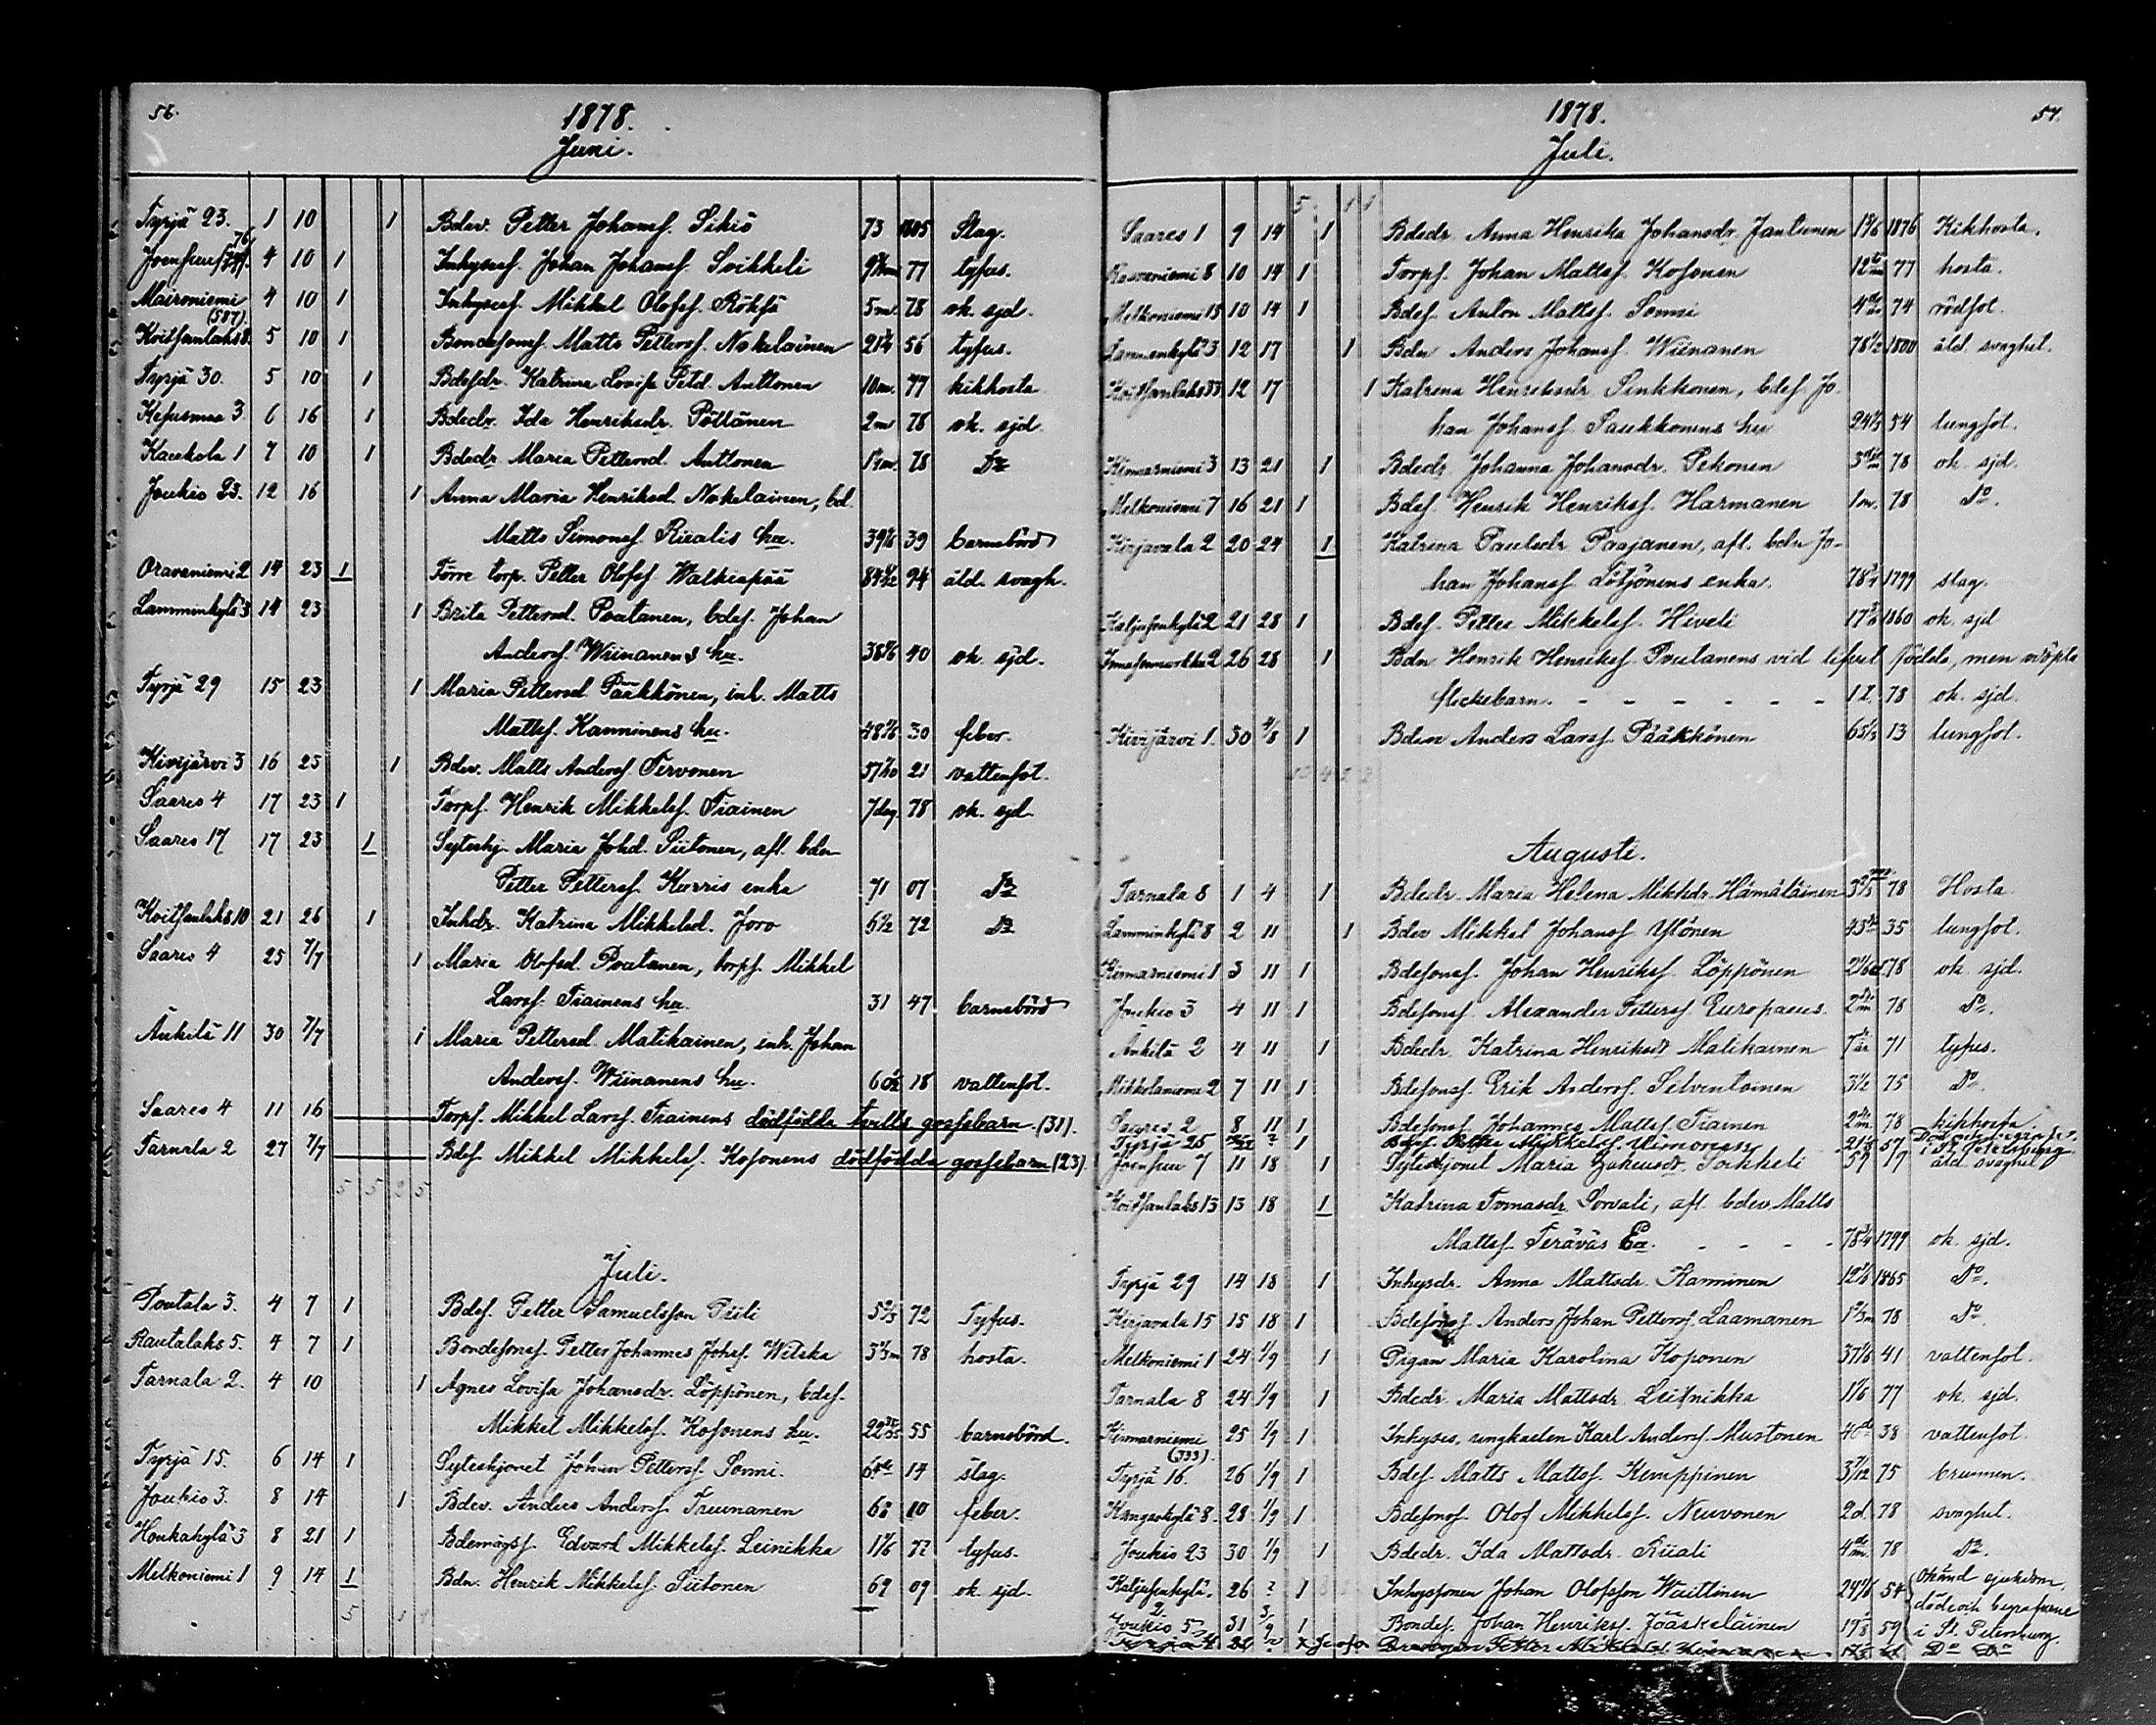 56.
1878.
Juni.
Tyrjä 23. 1 10 1 Bdev. Petter Johansf. Sikiö 73 1805 Slag.
4 10 1 Inhysesf. Johan Johansf. Svikkeli 77 tyfus.
Maironiemi (587) 4 10 1 Inhysesf. Mikkel Olofsf. Röksä 5 m. 78 ok. sjd.
Koitsanlaks 8. 5 10 1 Bondesonsf. Matts Pettersf. Nokelainen 21¼ 56 tyfus.
Tyrjä 30. 5 10 1 Bdesdr. Katrina Lovisa Petd. Anttonen 10 m. 77 kikhosta
Kesusmaa 3. 6 16 1 Bdedr. Ida Henriksdr. Pöllänen 2 m 78 ok. sjd.
Kaukola 1 7 10 1 Bdedr. Maria Pettersd. Anttonen 78 Do
Joukio 23. 12 16 1 Anna Maria Henriksd. Nokelainen, bd.
Matts Simonsf. Riialis hu. 39 barnsbörd
Oravaniemi 2 14 23 1 Förre torp. Petter Olofsf. Walkiapää 94 åld. svagh.
Lamminkylä 3 14 23 1 Brita Pettersd. Poutanen, bdes. Johan
Andersf. Wiinanens hu. 40 ok. sjd.
Tyrjä 29 15 23 1 Maria Pettersd. Pääkkönen, inh. Matts
Mattsf. Kanninens hu. 30 feber.
Kivijärvi 3 16 25 1 Bdev. Matts Andersf. Tervonen 21 vattensot.
Saares 4 17 23 1 Torpf. Henrik Mikkelsf. Tiainen 7 dag 78 ok. sjd.
Saares 17 17 23 1 Sytnhj. Maria Johd. Piitonen, afl. bdn
Petter Pettersf. Kurris enka 71 07 Do
Koitsanlaks 10 21 26 1 Inhdr. Katrina Mikkelsd. Joro 72 Do
Saares 4 25 7/7 1 Maria Olofsd. Poutanen, torpf. Mikkel
Larsf. Tiainens hu. 31 47 barnsbörd
Änkilä 11 30 7/7 1 Maria Pettersd. Matikainen, inh. Johan
Andersf. Wiinanens hu. 18 vattensot.
Saares 4 11 16 Torpf. Mikkel Larsf. Tiainens dödfödda tvills gossebarn. (31).
Tarnala 2 27 7/7 Bdesf. Mikkel Mikkelsf. Kosonens dödfödda gossebarn (23).
5 5 2 5
Juli.
Poutala 3. 4 7 1 Bdesf. Petter Samuelsson Piili 72 Tyfus.
Rautalaks 5. 4 7 1 Bondesonsf. Petter Johannes Johsf. Witska 78 hosta.
Tarnala 2. 4 10 1 Agnes Lovisa Johansdr. Löppönen, bdes.
Mikkel Mikkelsf. Kosonens hu. 55 barnsbörd.
Tyrjä 15. 6 14 1 Syteskjonet Johan Pettersf. Sonni. 14 slag.
Joukio 3. 8 14 1 Bdev. Anders Andersf. Truunanen 68 10 feber.
Honkakylä 3 8 21 1 Bdemågsf. Edvard Mikkelsf. Leinikka 77 tyfus.
Melkoniemi 1 9 14 1 Bdn. Henrik Mikkelsf. Piitonen 69 09 ok. sjd.
5
57.
1878.
Juli.
Saares 1 9 14 1 Bdedr. Anna Henrika Johansdr. Jantunen 1876 Kikhosta.
8 10 14 1 Torpf. Johan Mattsf. Kosonen 77 hosta.
Melkoniemi 15 10 14 1 Bdesf. Anton Mattsf. Sonni 74 rödsot.
Lamminkylä 3 12 17 1 Bdn Anders Johansf. Wiinanen 78½ 1800 åld. svaghet.
Koitsanlaks 33 12 17 1 Katrina Henriksdr Sinkkonen, bdes. Jo-
han Johansf. Paukkonens hu 54 lungsot.
Kinnarniemi 3 13 21 1 Bdedr. Johanna Johansdr. Pekonen 78 ok. sjd.
Melkoniemi 7 16 21 1 Bdesf. Henrik Henriksf. Harmanen 1 m. 78 Do.
Kirjavala 2 20 24 1 Katrina Paulsdr Paajanen, afl. bdn Jo-
han Johansf. Lötjönens enka. 1799 slag.
Kaljusenkylä 2 21 28 1 Bdesf. Petter Mikkelsf. Hiveli 1860 ok. sjd
2 26 28 1 Bdn Henrik Henriksf. Poutanens vid lifvet födda, men odöpta
flickebarn. 78 ok. sjd.
Kivijärvi 1. 30 4/8 1 Bdev Anders Larsf. Pääkkönen 13 lungsot.
Augusti.
Tarnala 8 1 4 1 Bdedr. Maria Helena Mikksdr. Hämäläinen 78 Hosta
Lamminkylä 8 2 11 1 Bdev Mikkel Johansf. Ylönen 35 lungsot.
Kinnarniemi 1 3 11 1 Bdesonsf. Johan Henriksf. Löppönen 78 ok. sjd.
Joukio 3 4 11 1 Bdesonsf. Alexander Pettersf. Europaeus. 78 Do.
Änkilä 2 4 11 1 Bdedr. Katrina Henriksdr Matikainen 71 tyfus.
Mikkolaniemi 2 7 11 1 Bdesonsf. Erik Andersf. Silventoinen 3½ 75 Do
Saares 2 8 11 1 Bdesonsf. Johannes Mattsf. Tiainen 78 kikhosta.
Tyrjä 25 1 Bdesf. Petter Mikkelsf. 57 i St. Petersburg
Joensuu 7 11 18 1 Syteskjonet Maria Tokkeli 59 19 åld. svaghet
Koitsanlaks 13 13 18 1 Katrina Tomasdr. Sorvali, afl. bdev. Matts
Mattsf. Teräväs Ea. 78¾ 1799 ok. sjd.
Tyrjä 29 14 18 1 Inhysdr. Anna Mattsdr. Kanninen 1865 Do.
Kirjavala 15 15 18 1 Bdesonsf. Anders Johan Pettersf. Laamanen 78 Do.
Melkoniemi 1 24 1/9 1 Pigan Maria Karolina Koponen 41 vattensot.
Tarnala 8 24 1/9 1 Bdedr. Maria Mattsdr. Leinikka 77 ok. sjd.
Kinnarniemi (333). 25 1/9 1 Inhyses. ungkarlen Karl Andersf. Mustonen 38 vattensot.
Tyrjä 16. 26 1/9 1 Bdesf. Matts Mattsf. Kemppinen 75 brunnen.
Kangaskylä 8. 28 1/9 1 Bdesonsf. Olof Mikkelsf. Neuvonen 2 d. 78 svaghet.
Joukio 23 30 1/9 1 Bdedr. Ida Mattsdr. Riiali 78 Do.
Kaljusenkylä 2. 26 ? 1 Inhyssonen Johan Olofsson Waittinen 54 okänd sjukdom,
döde och begrafvne
Joukio 5 31 1 Bondesf. Johan Henriksf. Jääskeläinen 59 i St. Petersburg.
Petter Mikkelsf. Do Do